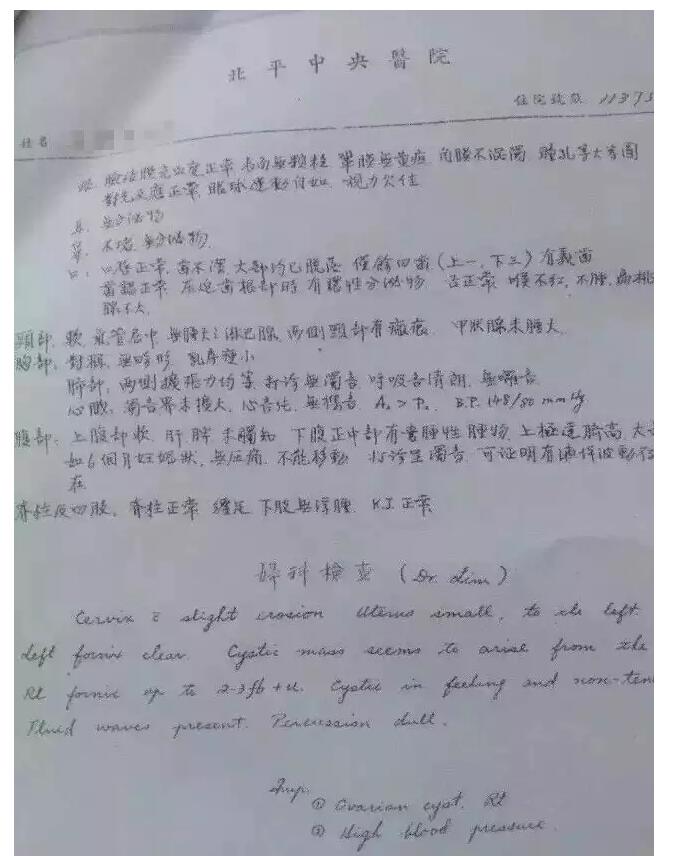 北平中央醫院
住院號數 11375
姓名
眼. 瞼結膜充血度正常 表面無顆粒 鞏膜無黃疸 角膜不混濁 瞳孔等大方圓
對光反應正常. 眼球運動自如. 視力欠佳
耳. 無分泌物
鼻. 不堵. 無分泌物.
口: 口唇正常. 齒不潔. 大部均已脫落 僅餘四齒 (上一, 下三) 有義齒
齒齦正常 在返齒根部時有膿性分泌物. 舌正常 喉不紅, 不腫, 扁桃
腺不大.
頸部. 軟. 氣管居中. 無腫大之淋巴腺. 兩側頸部有瘢痕. 甲狀腺未腫大.
胸部: 對稱. 無畸形. 乳房瘦小
肺部: 兩側擴張力均等. 打診無濁音. 呼吸音清朗. 無囉音
心臟: 濁音界未擴大. 心音純. 無雜音. A₂ > P₂. B.P. 148/80 mm Hg
腹部: 上腹部軟. 肝. 脾 未觸知. 下腹正中部有囊腫性腫物. 上極達臍高. 大
如6個月妊娠狀. 無壓痛. 不能移動. 打診呈濁音. 可证明有液体波動存
在
脊柱及四肢. 脊柱正常 纏足 下肢無浮腫. K.J. 正常
婦科檢查 (Dr. Lim)
Cervix c̄ slight erosion Uterus small, to the left.
Left fornix clear. Cystic mass seems to arise from the
Rt fornix up to 2-3 fb + u. Cystic in feeling and non-ten
Fluid waves present. Percussion dull.
Imp.
① Ovarian cyst. Rt
② High blood pressure.